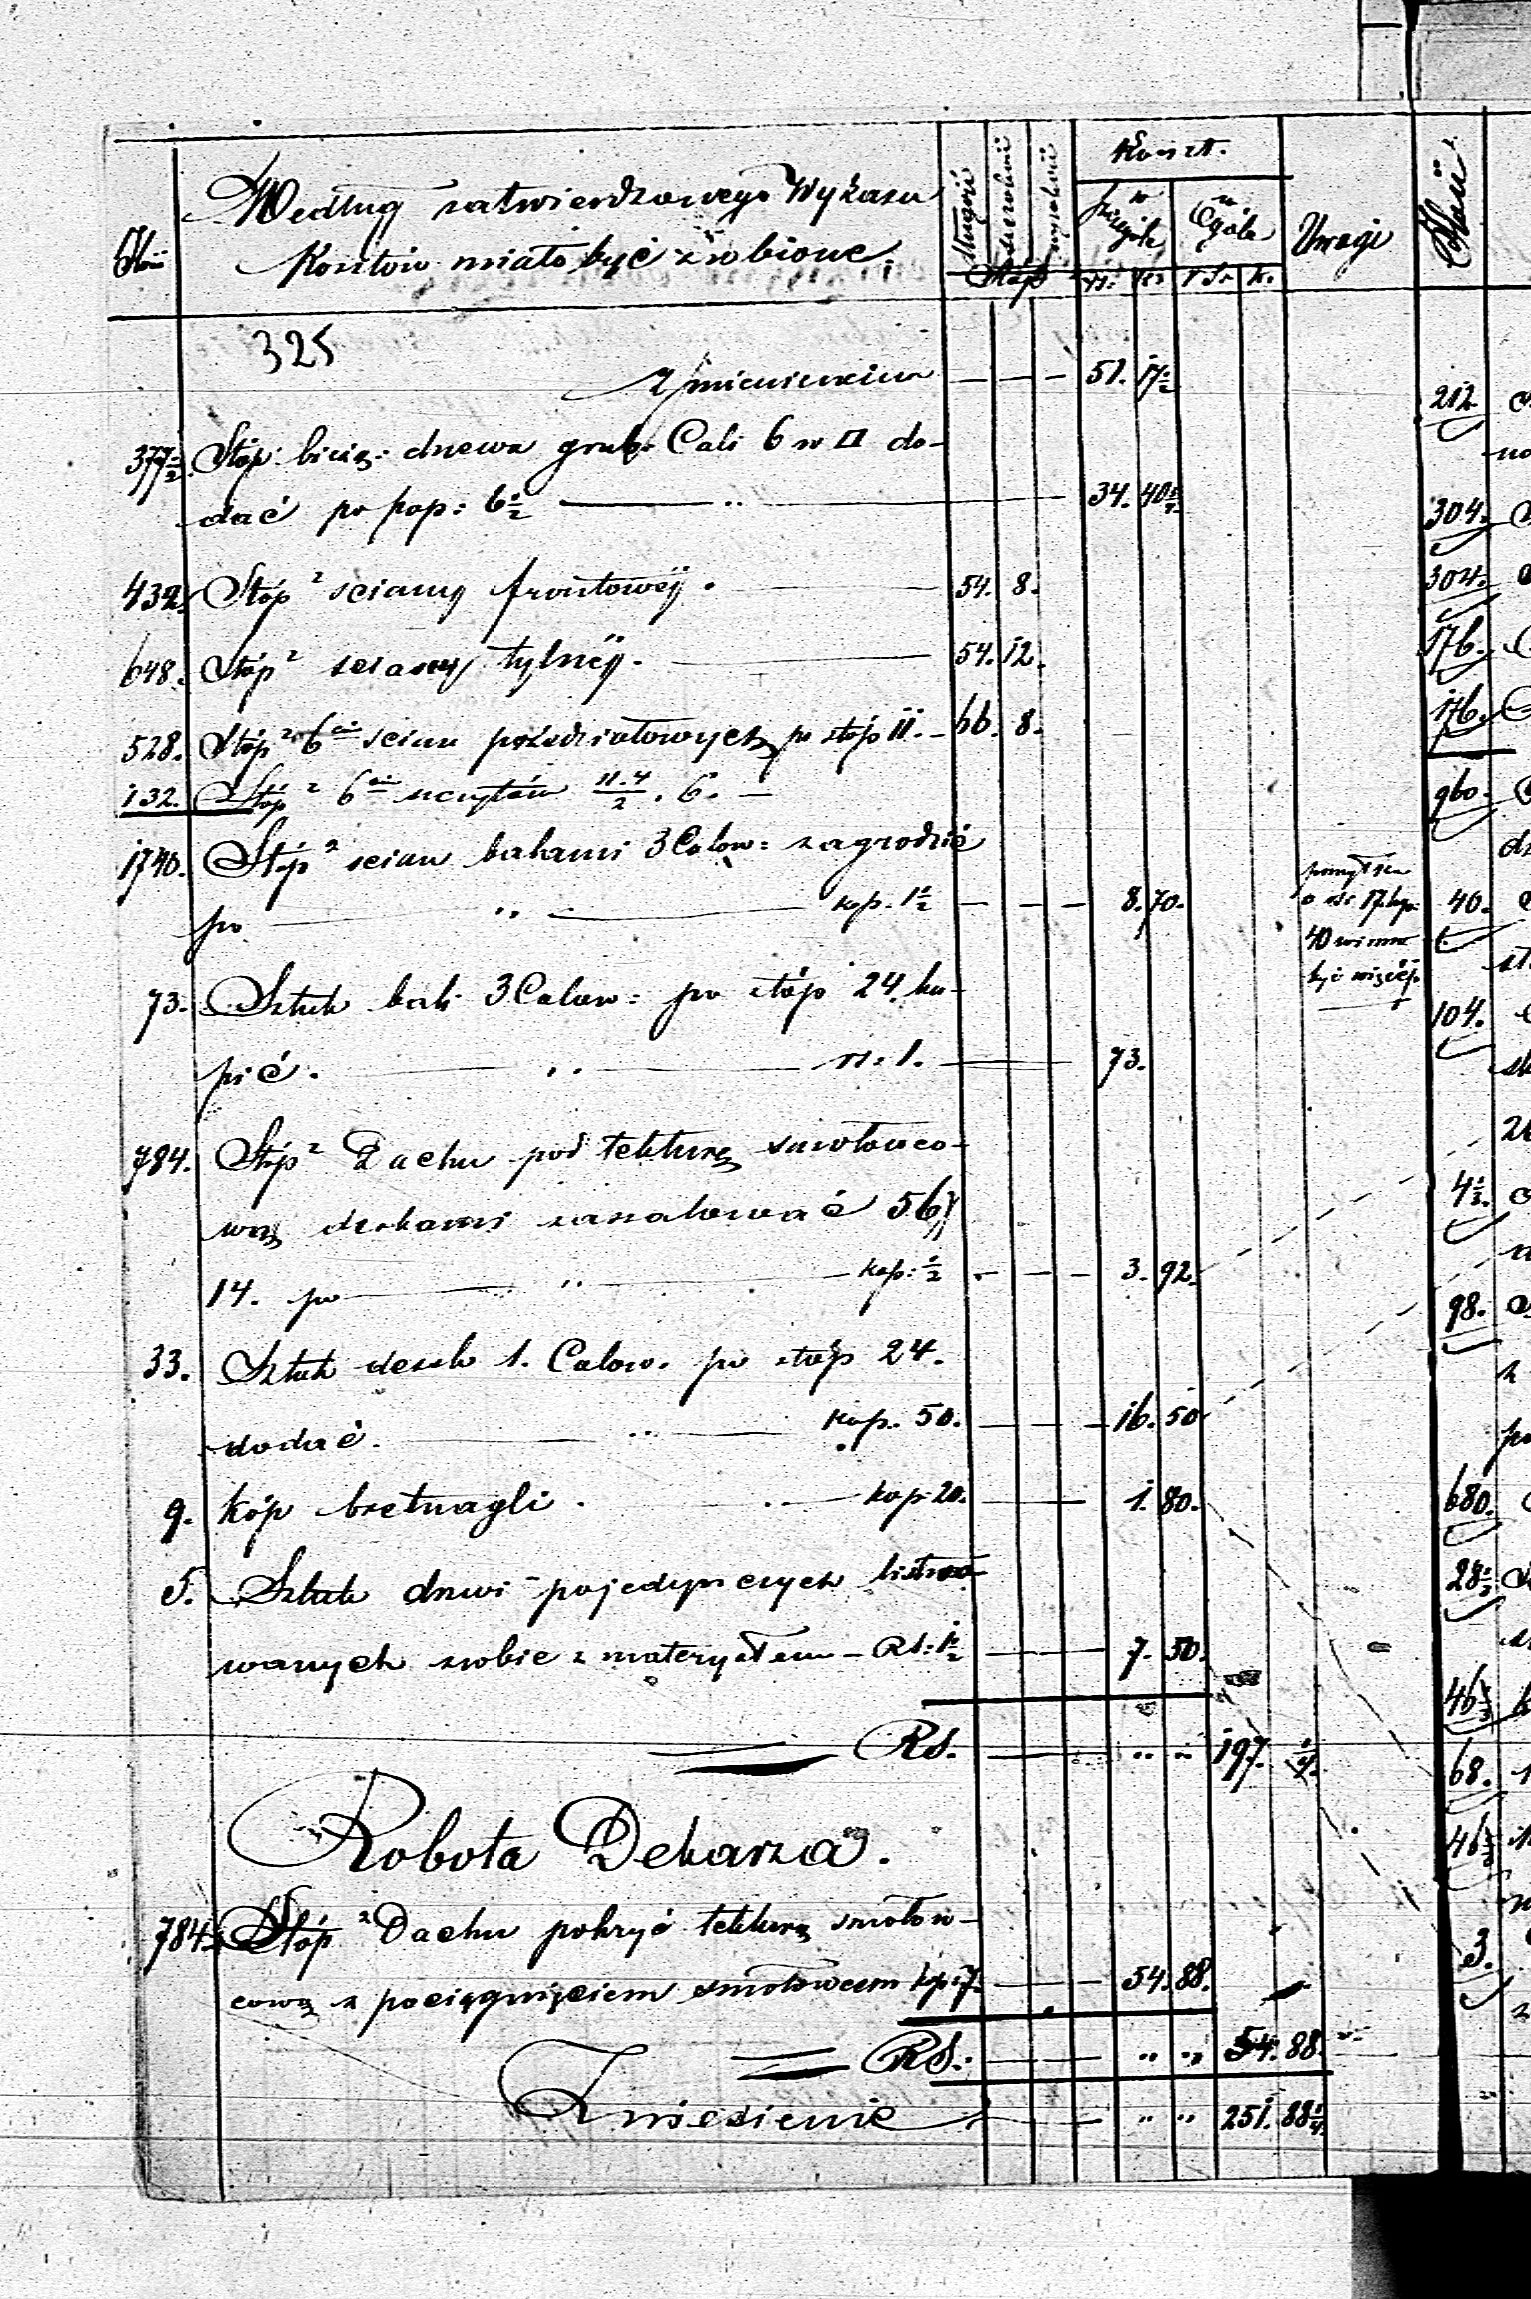 Ilość
Według zatwierdzonego Wykazu
Kosztów miało być zrobione.
długość szerokość wysokość
Stóp
Koszt.
w szczególe
w Ogóle
rs. kop. rsr. k.
Uwagi
Ilość
325
Z przeniesienia — — — 51. 17½
377½ Stóp bież: drzewa grub. Cali 6 w □ do-
dać po kop: 6½ — „ — 34. 40
432. Stóp² sciany frontowéj. — 54. 8.
648. Stóp² sciany tylnéj. — 54. 12.
528. Stóp² 6 scian przedziałowych po stóp 11. — 66. 8.
132. Stóp² 6 szczytów 11.4/2 . 6. —
1740. Stóp² scian balami 3 Calow: zagrodzić
po — „ — kop. 1½ — — — 8. 70.
pomyłka
o rsr. 17 kop.
40 winno
być więcéj.
73. Sztuk bali 3 Calow: po stóp 24. ku-
pić. — „ — rs. 1. — 73.
784. Stóp² Dachu pod tekturę smołowco-
wą deskami zaszalować 56/
14. po — „ — kop: ½ — — — 3. 92.
33. Sztuk desek 1. Calow. po stóp 24.
dodać. — „ — kop. 50. — — — 16. 50
9. kóp bretnagli . „ — kop 20. — 1. 80.
5. Sztuk drzwi pojedynczych listwo-
wanych zrobić z materyałem — Rs. 1½ — 7. 50.
Rs. — „ „ 197. ¼.
Robota Dekarza.
784. Stóp² Dachu pokryć tekturą smołow-
cową z pociągnięciem smołowcem kop. 7. — 54. 88.
Rs. — „ „ 54. 88.
Zniesienie — „ „ 251. 88¼
212
304.
304.
176.
176.
960.
40.
104.
4½.
98.
680.
28½
46½
68.
46½
3.